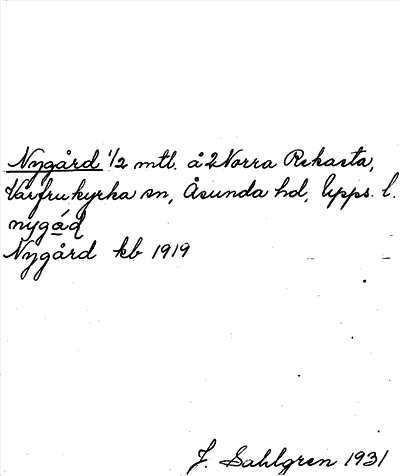 Nygård 1/2 mtl. å 2 Norra Rekasta,
Vårfrukyrka sn, Åsunda hd, Upps. l.
nygåd
Nygård kb 1919
J. Sahlgren 1931